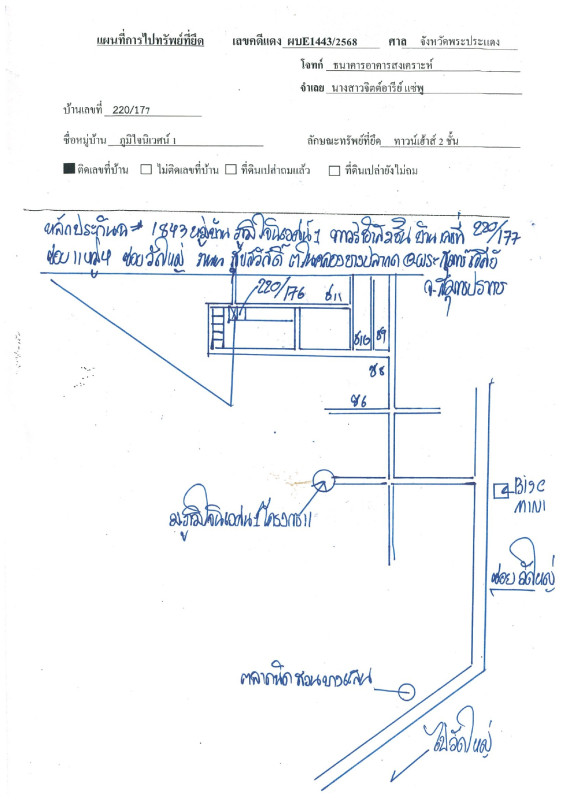 แผนที่การไปทรัพย์ที่ยึด เลขคดีแดง ผบE1443/2568 ศาล จังหวัดพระประแดง
โจทก์ ธนาคารอาคารสงเคราะห์
จำเลย นางสาวจิตต์อารีย์ แซ่พู
บ้านเลขที่ 220/177
ชื่อหมู่บ้าน ภูมิใจนิเวศน์ 1 ลักษณะทรัพย์ที่ยึด ทาวน์เฮ้าส์ 2 ชั้น
ติดเลขที่บ้าน ไม่ติดเลขที่บ้าน ที่ดินเปล่าถมแล้ว ที่ดินเปล่ายังไม่ถม
หลักประกัน # 1843 หมู่บ้าน ภูมิใจนิเวศน์ 1 ทาวน์เฮ้าส์ 2 ชั้น บ้านเลขที่ 220/177
ซอย 11 หมู่ 4 ซอยวัดใหญ่ ถนน สุขสวัสดิ์ ต.ในคลองบางปลากด อ.พระสมุทรเจดีย์
จ.สมุทรปราการ
220/176 ซ11
ซ10 ซ9
ซ8
ซ6
BigC
MINI
ม.ภูมิใจนิเวศน์ 1 โครงการ 11
ซอยวัดใหญ่
ตลาดนัด
ไปวัดใหญ่